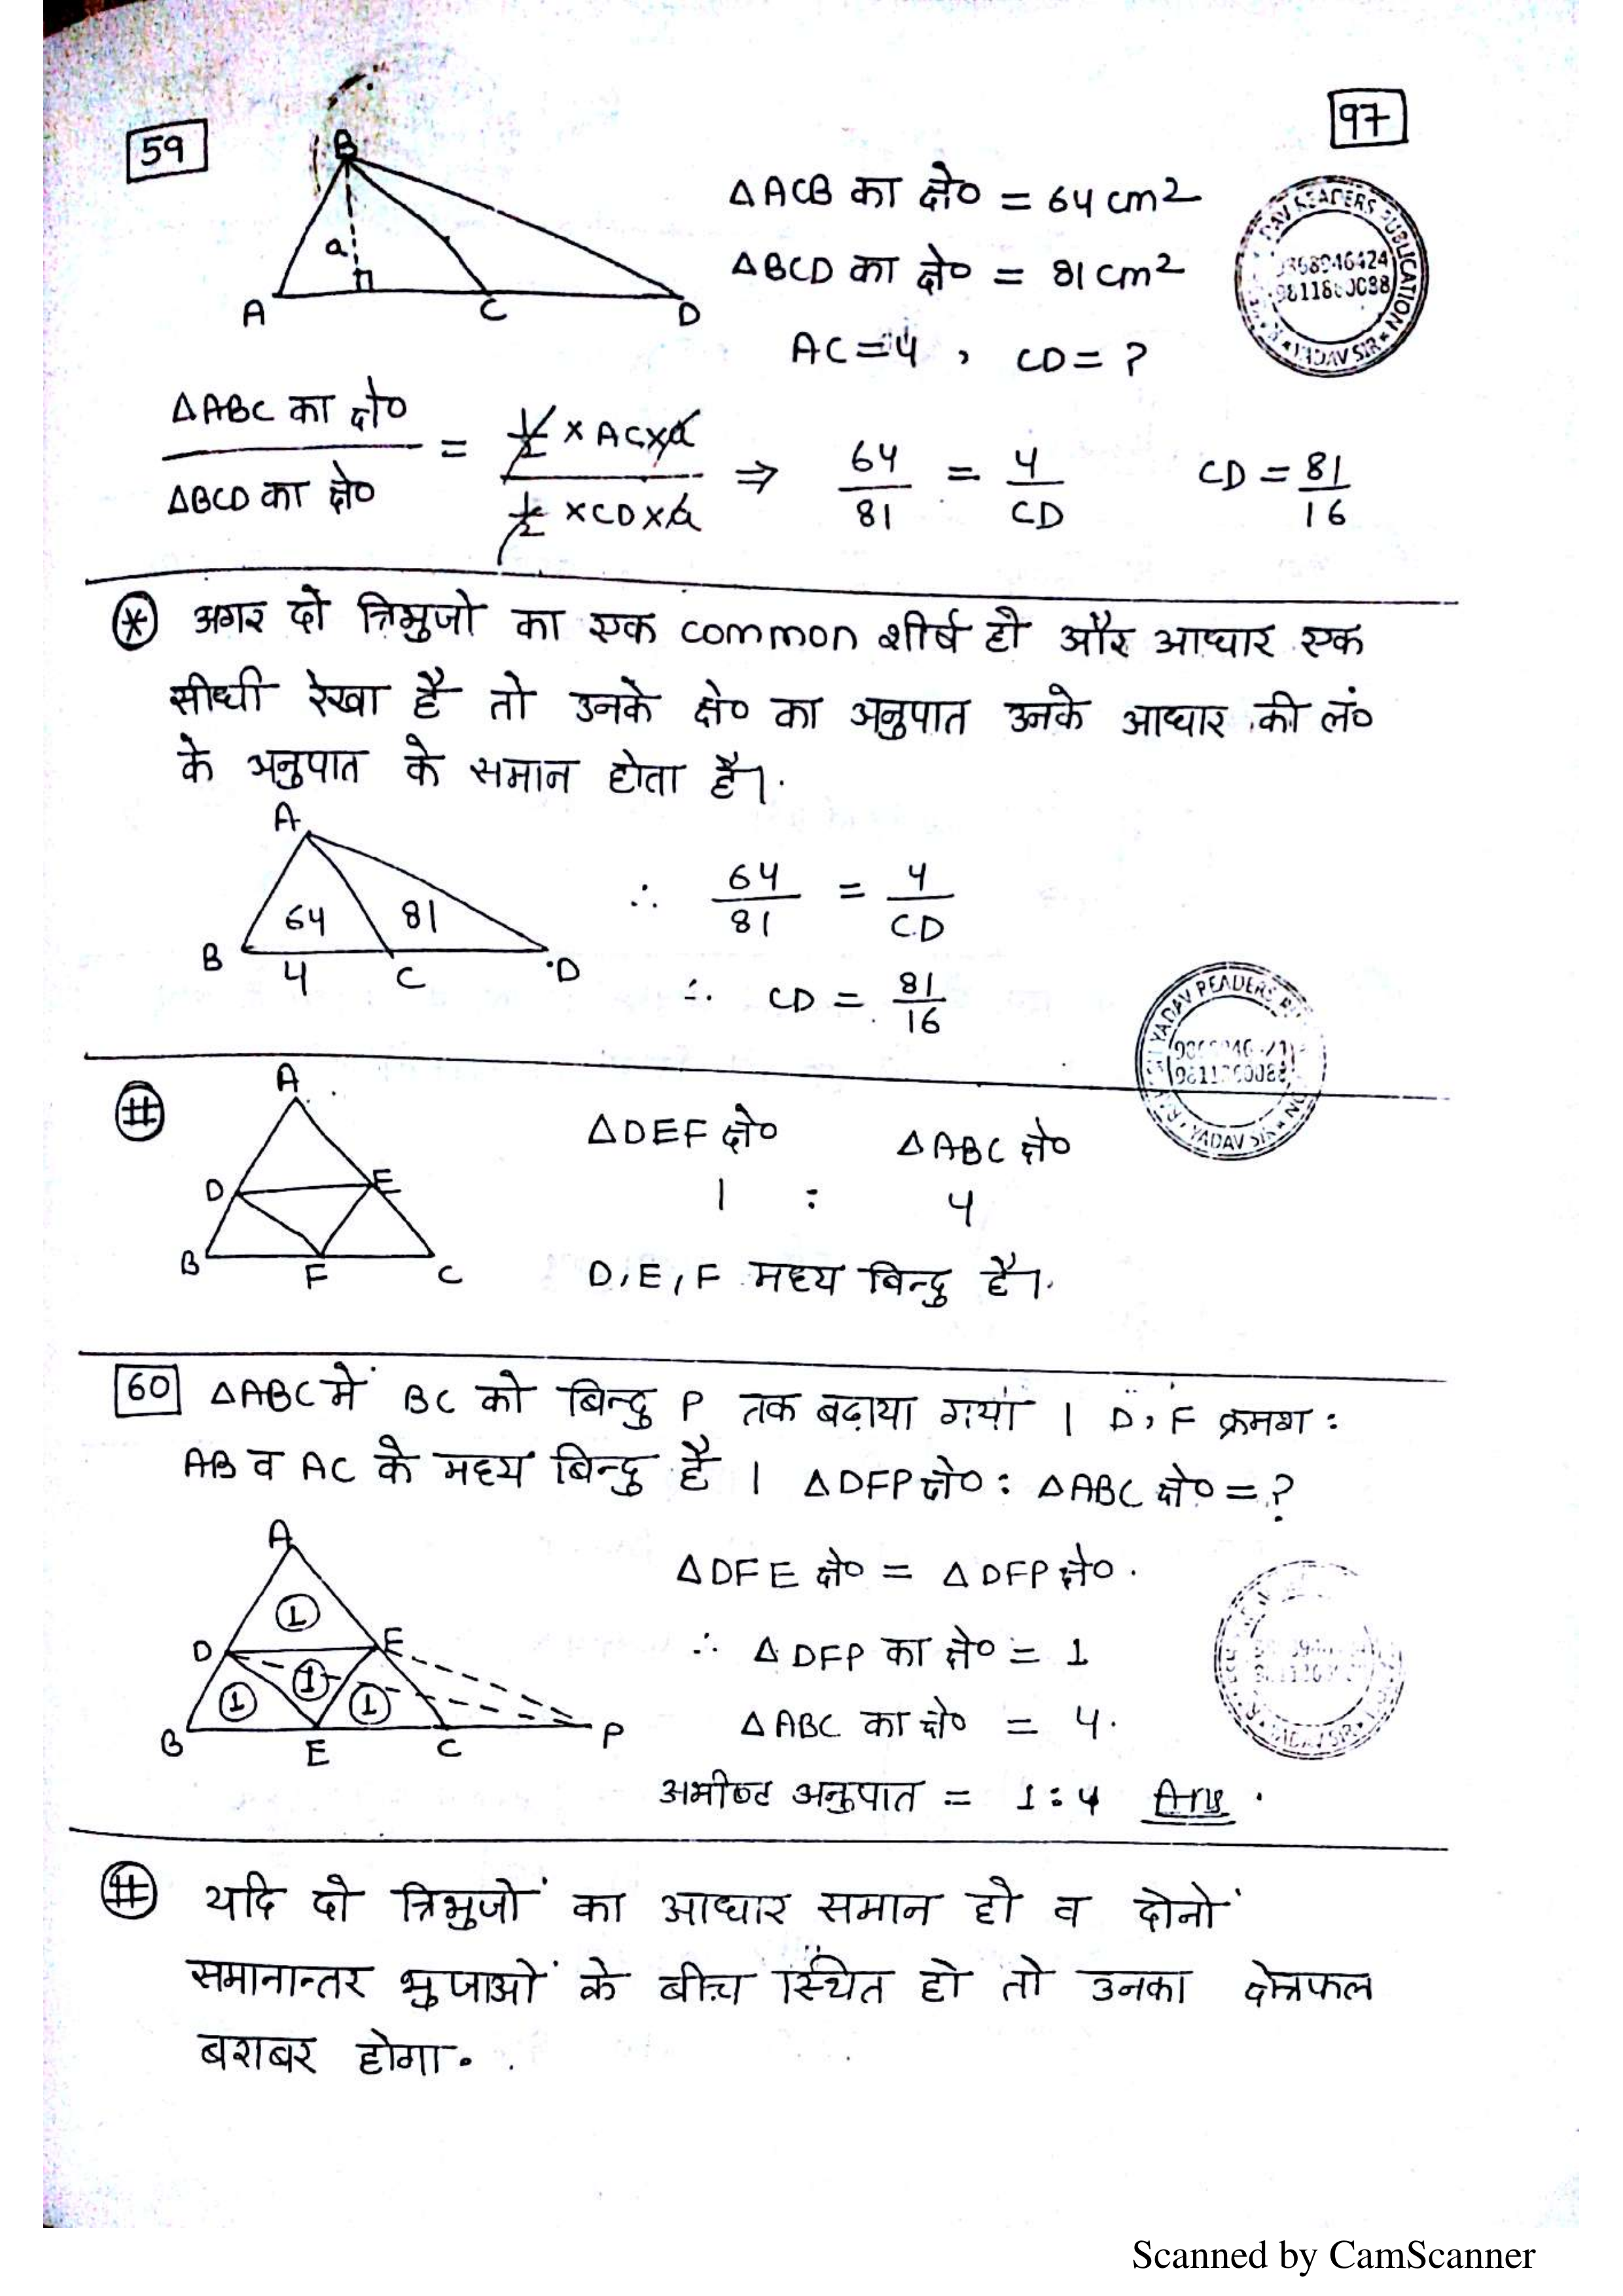 59
97
B
a
A C D
△ACB का क्षे० = 64 cm2
△BCD का क्षे० = 81 cm2
AC=4 , CD= ?
YADAV SIR
△ABC का क्षे० / △BCD का क्षे० = 1/2 × AC×a / 1/2 ×CD×a ⇒ 64/81 = 4/CD CD = 81/16
* अगर दो त्रिभुजो का एक common शीर्ष हो और आधार एक
सीधी रेखा है तो उनके क्षे० का अनुपात उनके आधार की लं०
के अनुपात के समान होता है।
A
64 81
B 4 C D
∴ 64/81 = 4/CD
∴ CD = 81/16
YADAV READERS
YADAV SIR
#
A
D E
B F C
△DEF क्षे० △ABC क्षे०
1 : 4
D, E, F मध्य बिन्दु है।
60 △ABC में BC को बिन्दु P तक बढ़ाया गया । D, F क्रमश :
AB व AC के मध्य बिन्दु है । △DFP क्षे० : △ABC क्षे० = ?
A
1
D E
1 1 1
B E C P
△DFE क्षे० = △DFP क्षे०
∴ △DFP का क्षे० = 1
△ABC का क्षे० = 4.
अभीष्ट अनुपात = 1:4 Ans
# यदि दो त्रिभुजों का आधार समान हो व दोनों
समानान्तर भुजाओं के बीच स्थित हो तो उनका क्षेत्रफल
बराबर होगा.
Scanned by CamScanner